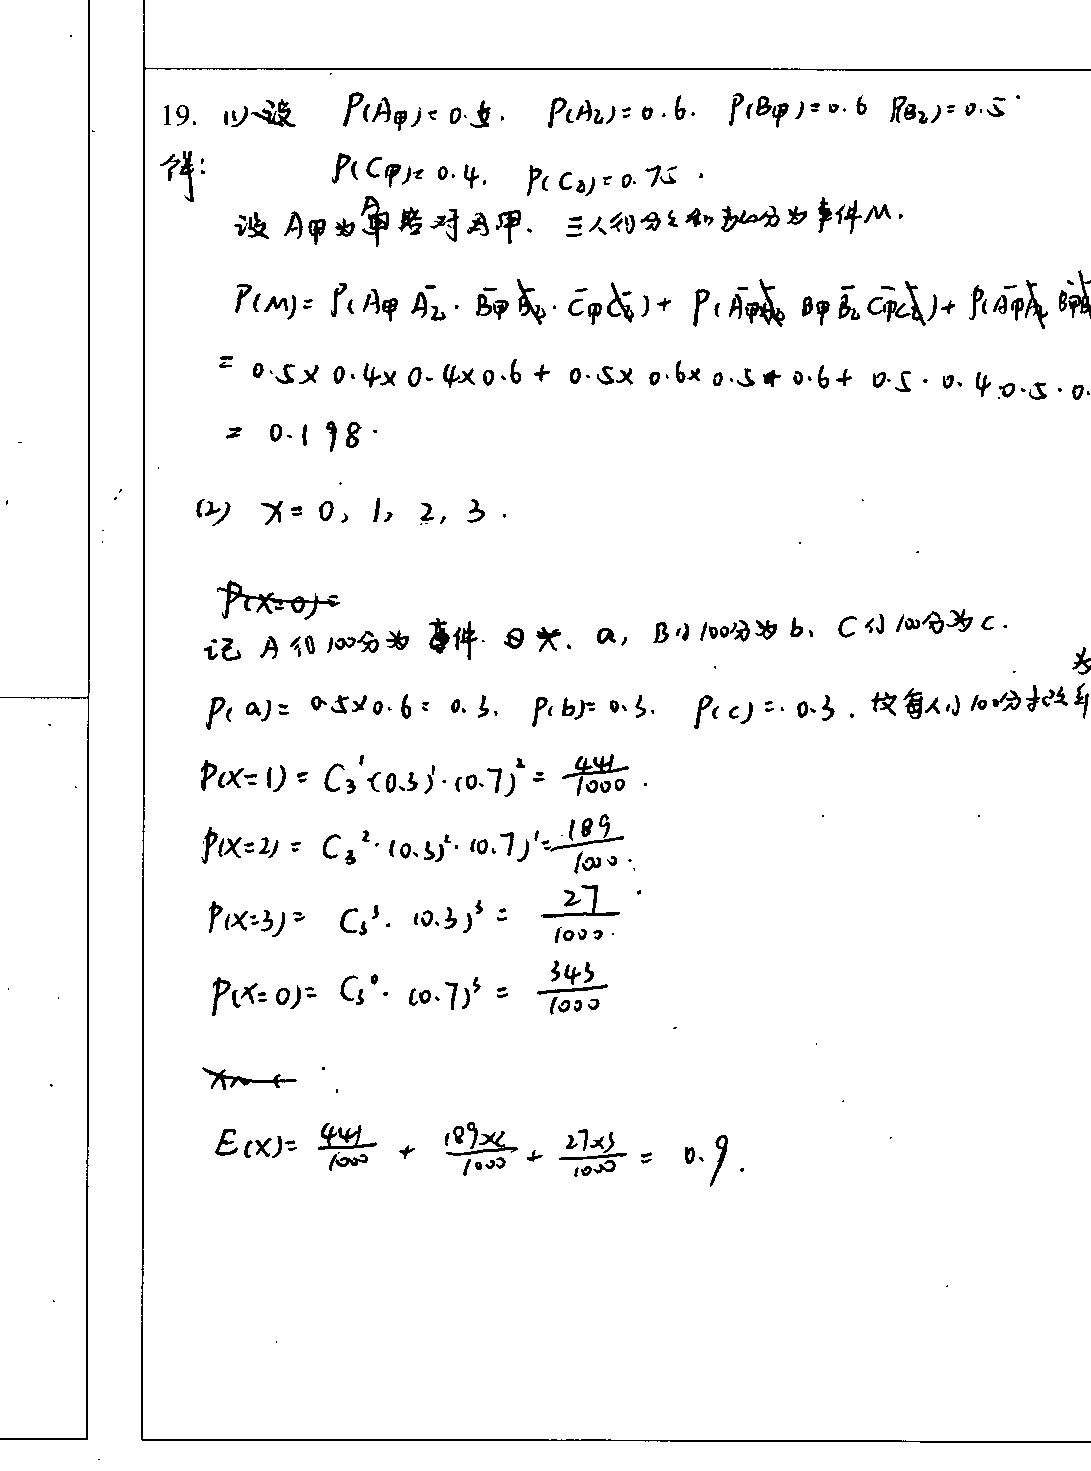 19. (1) 设 P(A甲)=0.5. P(A乙)=0.6. P(B甲)=0.6 P(B乙)=0.5
解: P(C甲)=0.4. P(C乙)=0.75.
设 A甲为A答对甲. 三人得分之和为事件M.
P(M)= P(A甲 A̅乙 · B̅甲 · C̅甲) + P(A̅甲 B甲 B̅乙 C̅甲) + P(A̅甲 B̅甲
= 0.5×0.4×0.4×0.6 + 0.5×0.6×0.5×0.6 + 0.5·0.4·0.5·0.
= 0.198.
(2) X=0, 1, 2, 3.
记 A得100分为事件 a, B得100分为b, C得100分为c.
P(a)= 0.5×0.6= 0.3. P(b)= 0.3. P(c)= 0.3. 故每人得100分
P(X=1) = C₃¹·(0.3)¹·(0.7)² = 441/1000.
P(X=2) = C₃²·(0.3)²·(0.7)¹= 189/1000.
P(X=3)= C₃³·(0.3)³ = 27/1000.
P(X=0)= C₃⁰·(0.7)³ = 343/1000
E(X)= 441/1000 + 189×2/1000 + 27×3/1000 = 0.9.